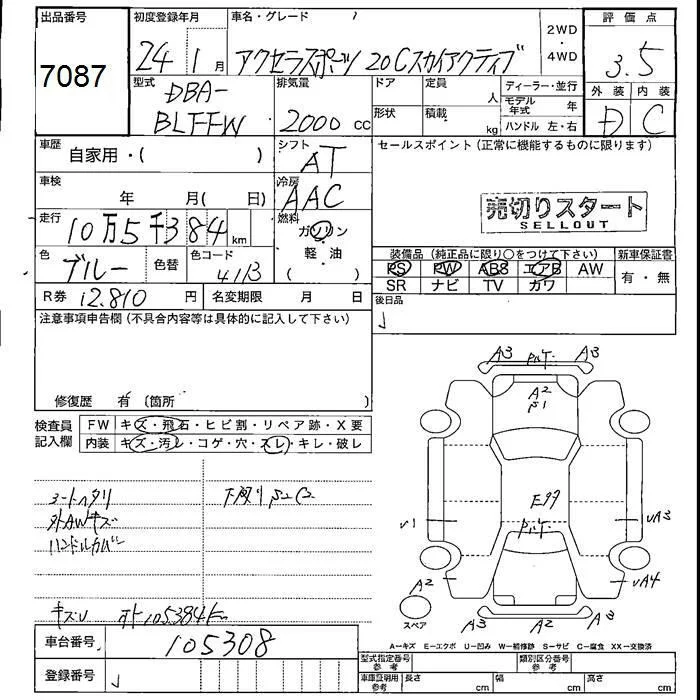 出品番号 初度登録年月 車名・グレード 2WD ・ 4WD 評価点
7087 24 1月 アクセラスポーツ 20Cスカイアクティブ 3.5
型式 DBA- BLFFW 排気量 2000 cc ドア 定員 人 ディーラー・並行 外装 内装
形状 積載 kg モデル年式 年 ハンドル 左・右 D C
車歴 自家用・( ) シフト AT セールスポイント(正常に機能するものに限ります)
車検 年 月( 日) 冷房 AAC 売切りスタート
SELLOUT
走行 10万5千384 km 燃料 ガソリン
軽油
( )
色 ブルー 色替 色コード 41B 装備品(純正品に限り○をつけて下さい) 新車保証書
PS PW ABS エアB AW 有・無
R券 12.810 円 名変期限 月 日 SR ナビ TV カワ
注意事項申告欄(不具合内容等は具体的に記入して下さい) 後日品
修復歴 有(箇所 )
検査員記入欄 FW キズ・飛石・ヒビ割・リペア跡・X要
内装 キズ・汚レ・コゲ・穴・スレ・キレ・破レ
シートヘタリ
外AWキズ
ハンドルカバー
キズU 105384km
A3 A3
A2
E99
V1 UA3
A2 UA4
スペア A3 A2 A3
A-キズ E-エクボ U-凹み W-補修跡 S-サビ C-腐食 XX-交換済
車台番号 105308
登録番号
型式指定番号 参考 類別区分番号 参考
車庫証明用 参考 長さ cm 幅 cm 高さ cm